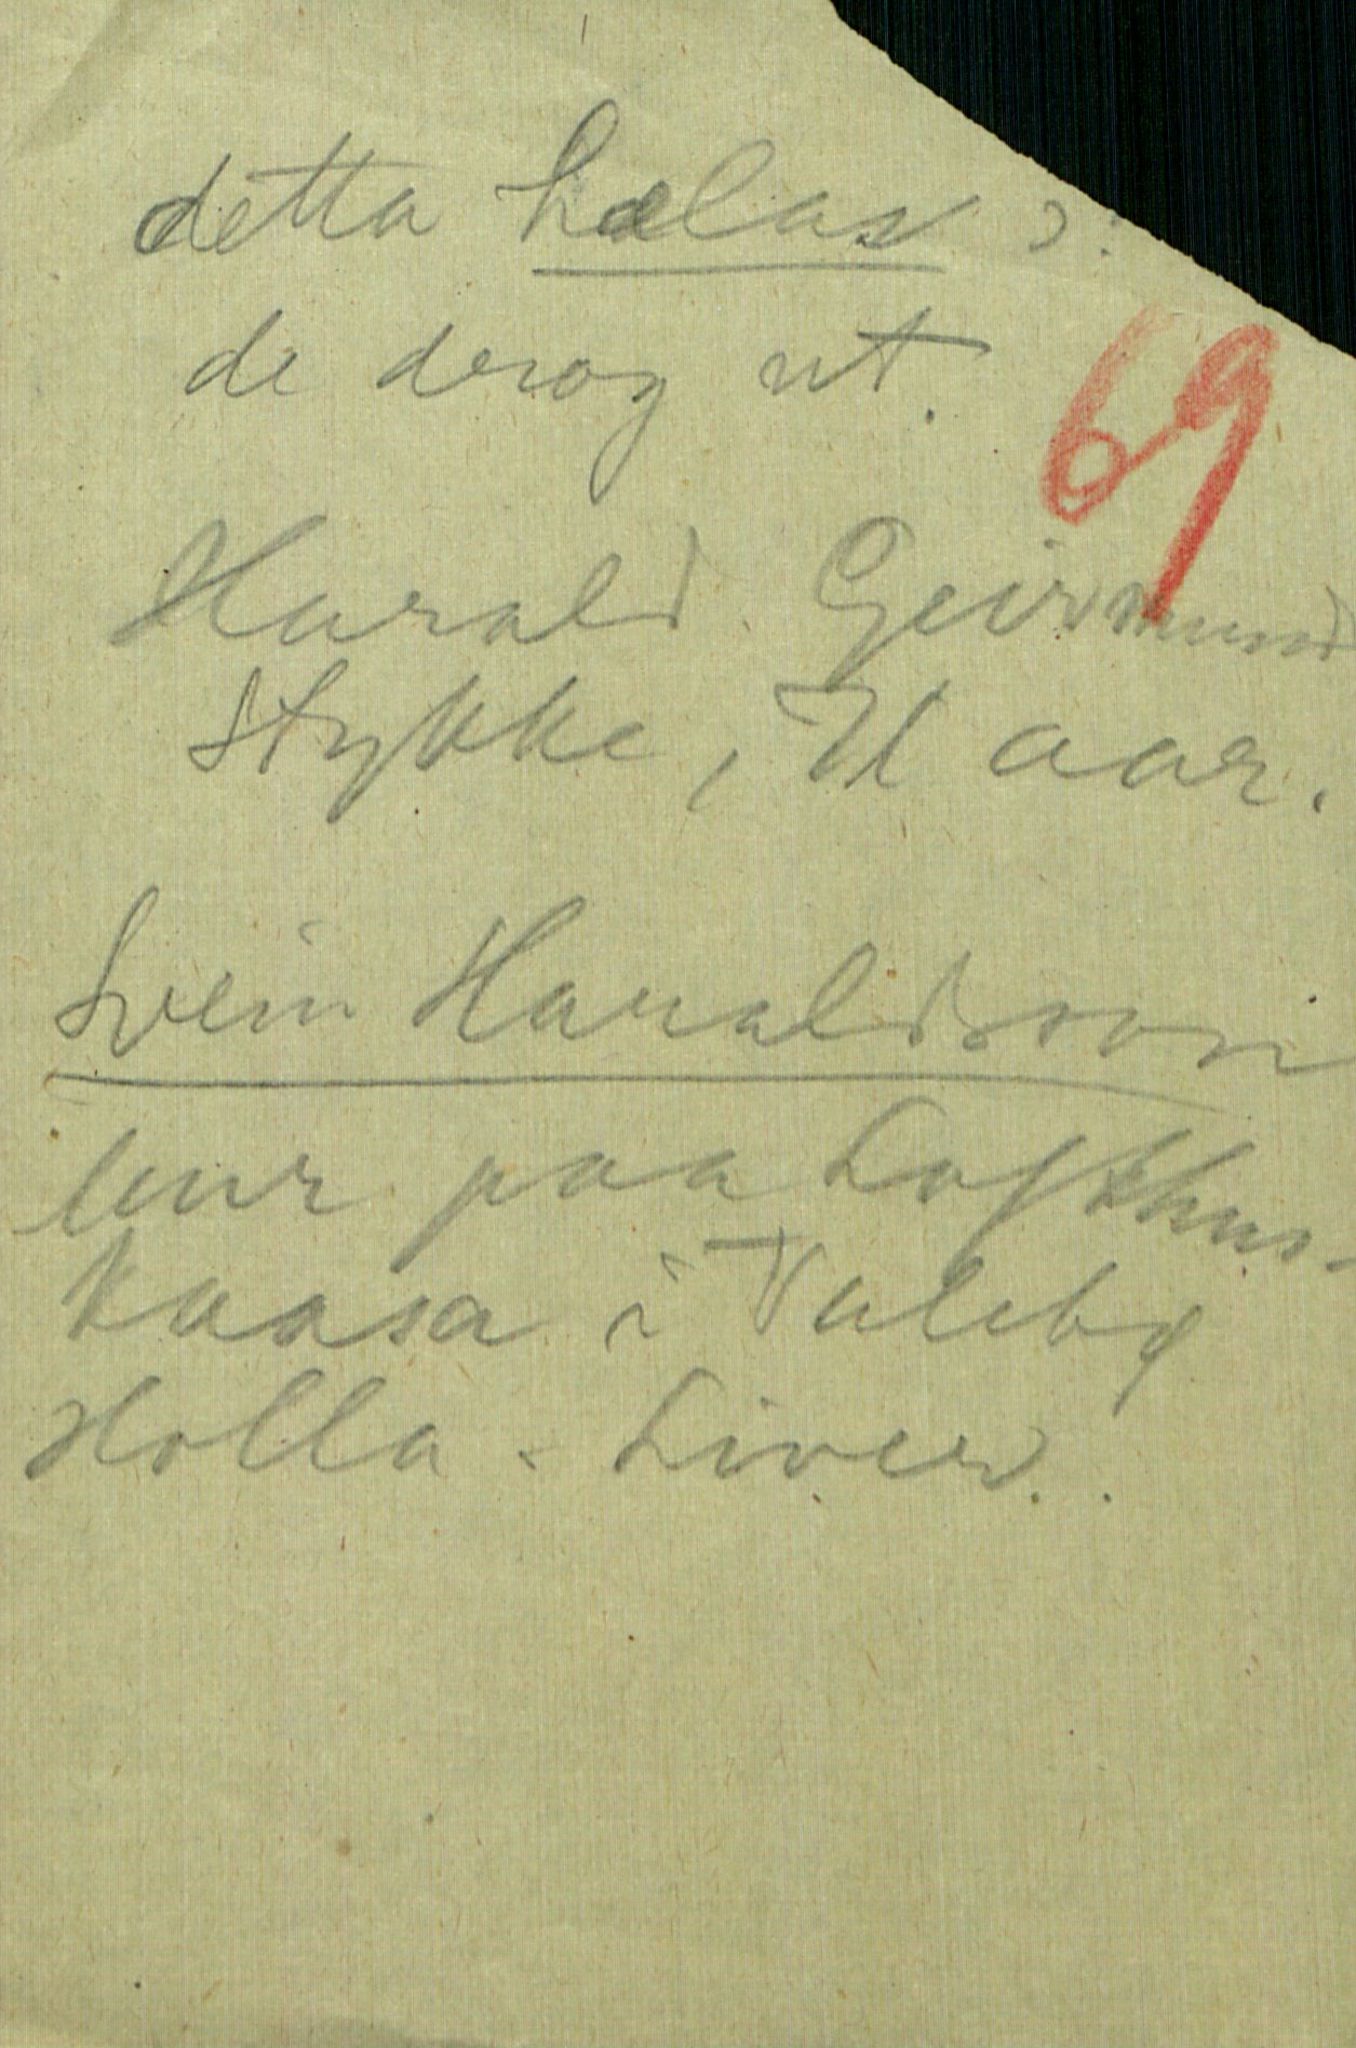 detta helas ɔ:
de drog ut.
69
Harald Geirmund
stykke, 71 aar.
Svein Haraldsson
bur paa Lofthus-
kaasa i Tuleby
Holla - Livero.